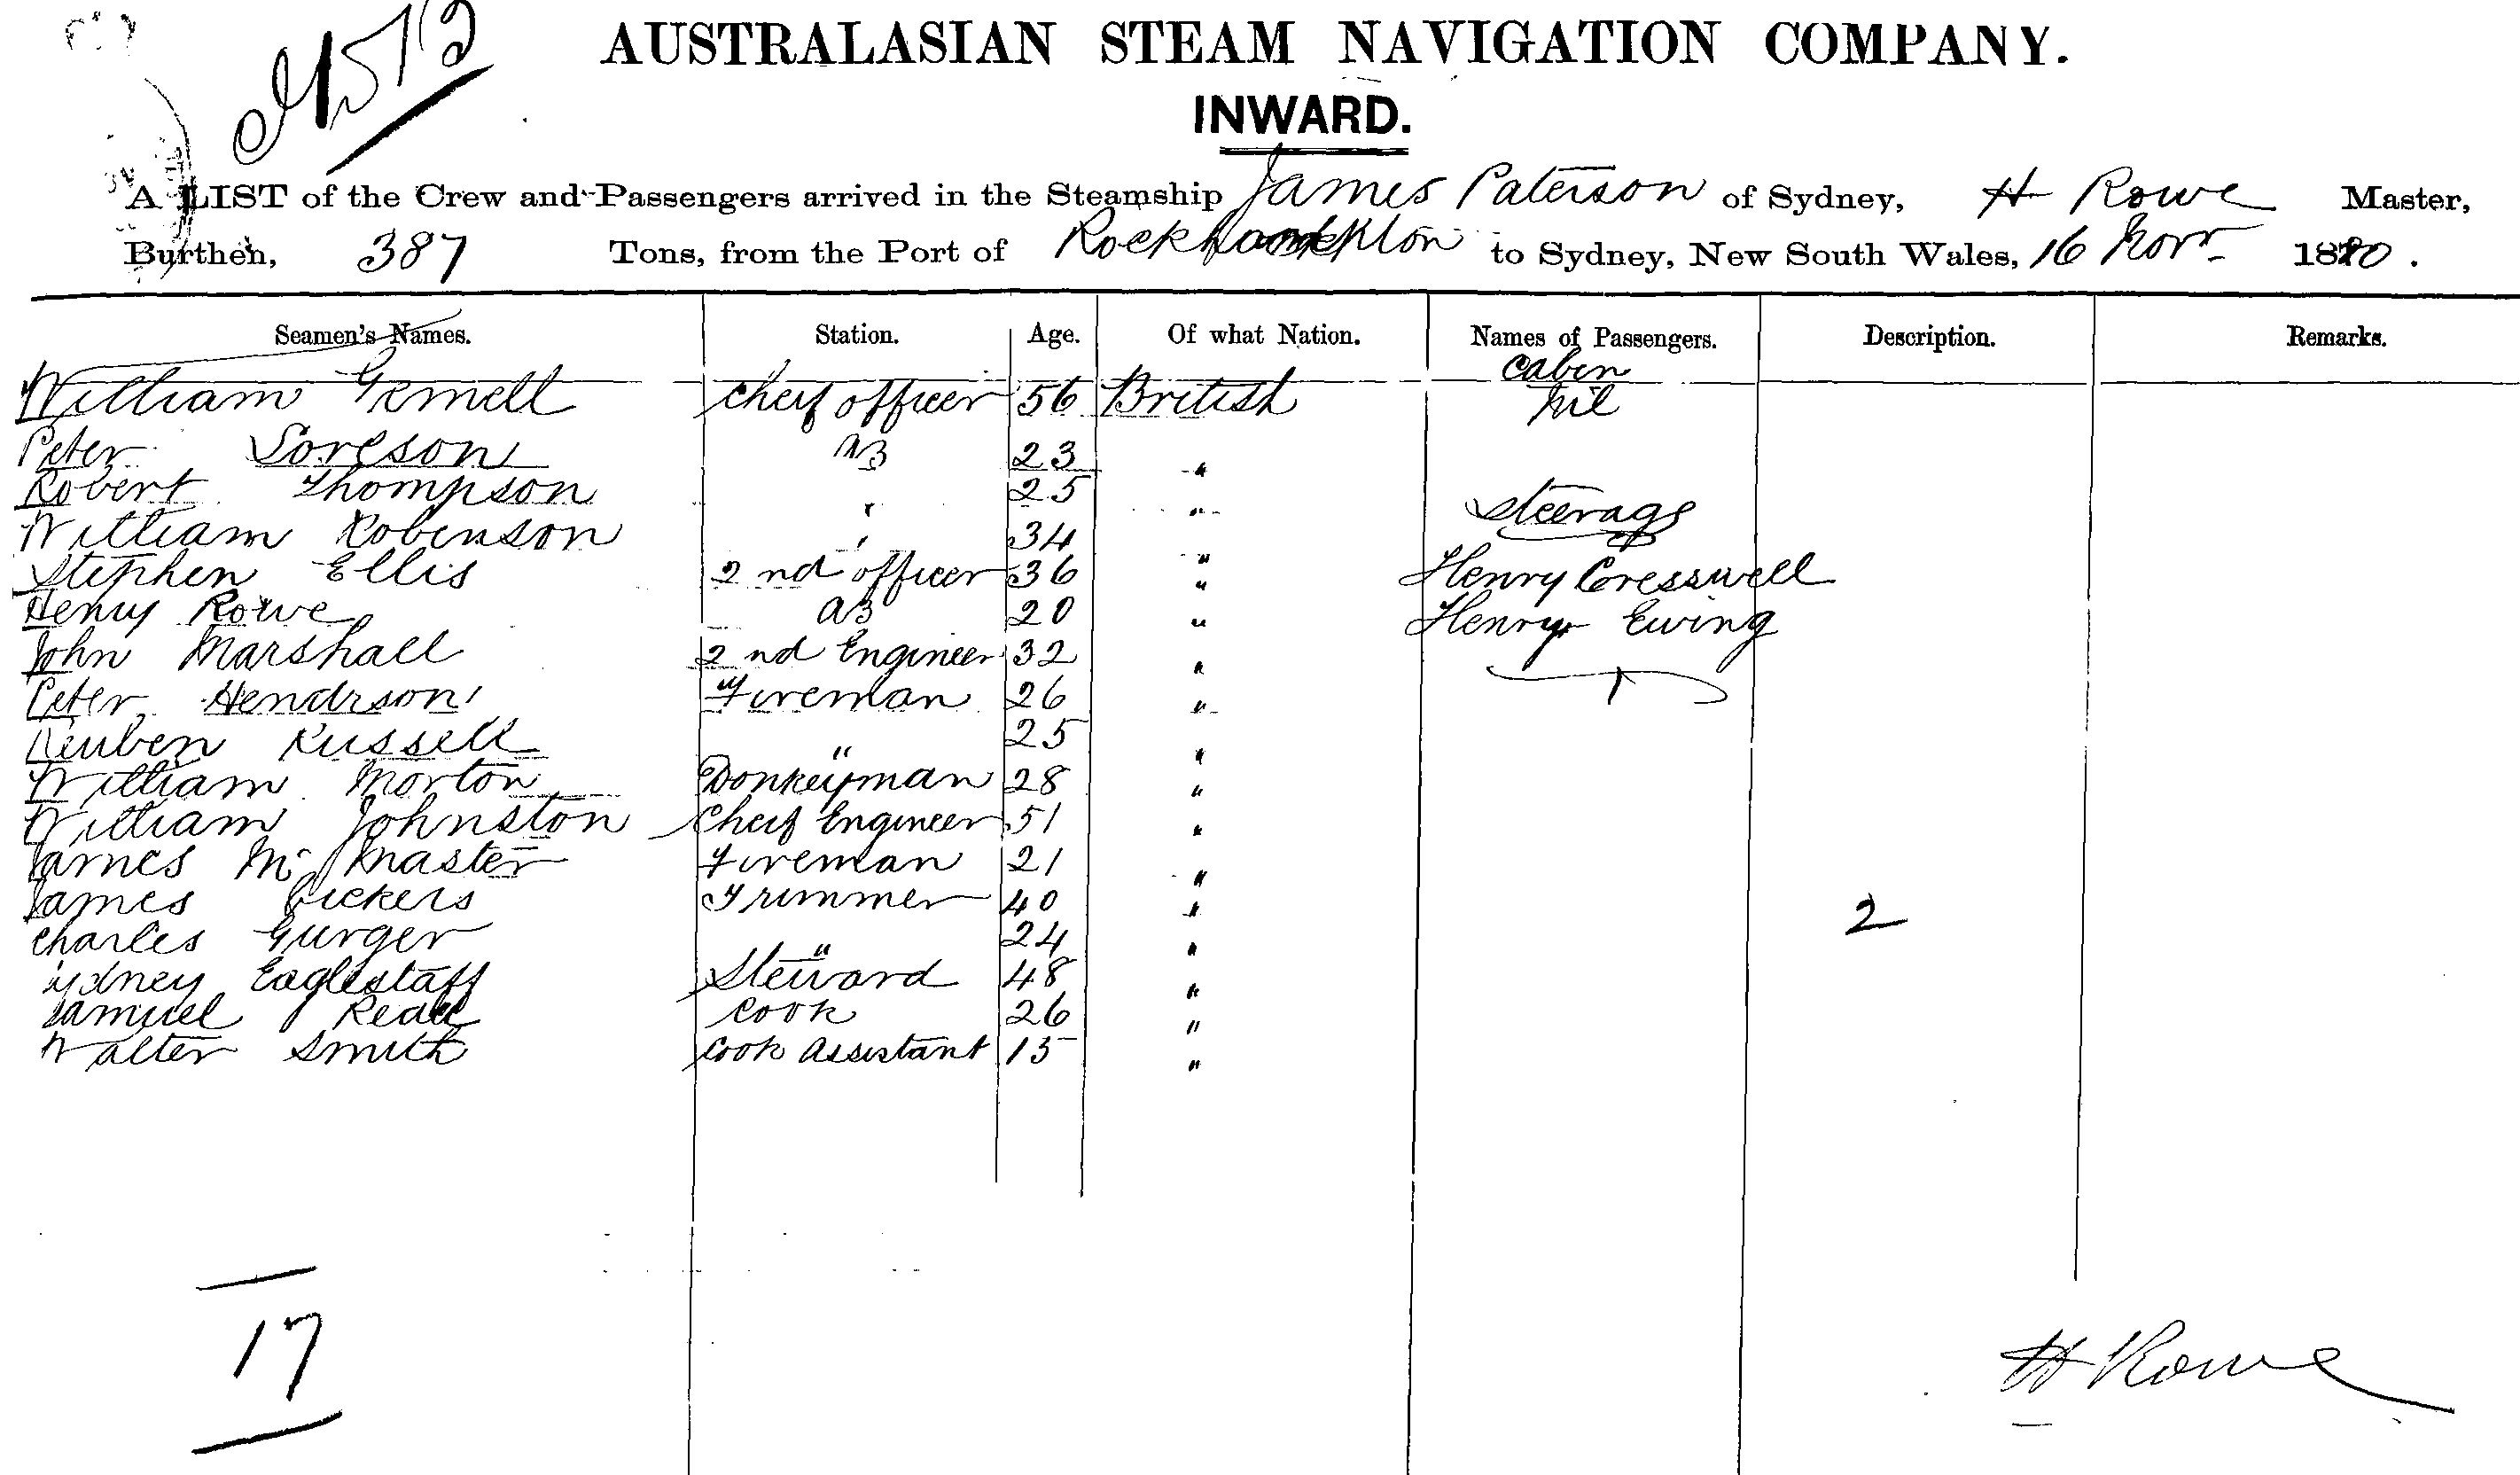 AUSTRALASIAN STEAM NAVIGATION COMPANY.
INWARD.
A LIST of the Crew and Passengers arrived in the Steamship James Paterson of Sydney, H Rowe Master,
Burthen, 387 Tons, from the Port of to Sydney, New South Wales, 16 Novr 1880.
Seamen's Names. Station. Age. Of what Nation. Names of Passengers. Description. Remarks.
Cabin
William Gemell Cheif officer 56 British Nil
Peter Soreson AB 23 "
Robert Thompson " 25 "
Steerage
William Robinson " 34 "
Stephen Ellis 2nd officer 36 " Henry Cresswell
Henry Rowe AB 20 " Henry Ewing
John Marshall 2nd Engineer 32 "
Peter Hendrson 26 Fireman "
Reuben Russell " 25 "
William Morton Donkeyman 28 "
William Johnston Cheif Engineer 51 "
James Mc Master Fireman 21 "
James Vickers Trimmer 40 "
2
Charles Gurger " 24 "
Sydney Eaglestaff Steward 48 "
Samuel Cook 26 "
Walter Smith Cook Assistant 15 "
17
H Rowe